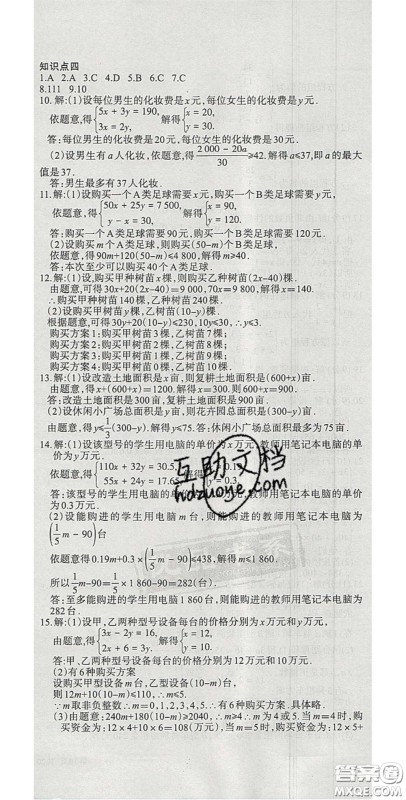 知识点四
1.A 2.A 3.C 4.D 5.B 6.C 7.C
8.111 9.10
10.解:(1)设每位男生的化妆费是x元,每位女生的化妆费是y元.
依题意,得{5x+3y=190, 3x=2y, 解得{x=20, y=30.
答:每位男生的化妆费是20元,每位女生的化妆费是30元.
(2)设男生有a人化妆,依题意,得(2 000-20a)/30≥42.解得a≤37,即a的最大
值是37.
答:男生最多有37人化妆.
11.解:(1)设购买一个A类足球需要x元,购买一个B类足球需要y元,
依题意,得{50x+25y=7 500, y-x=30, 解得{x=90, y=120.
答:购买一个A类足球需要90元,购买一个B类足球需要120元.
(2)设购买m个A类足球,则购买(50-m)个B类足球,
依题意,得90m+120(50-m)≤4 800,解得m≥40.
答:本次至少可以购买40个A类足球.
12.解:(1)设购买甲种树苗x棵,则购买乙种树苗(2x-40)棵.
由题意,可得30x+20(2x-40)=9 000,70x=9 800,解得x=140.
∴购买甲种树苗140棵,乙种树苗240棵.
(2)设购买甲树苗y棵,乙树苗(10-y)棵.
根据题意,可得30y+20(10-y)≤230,10y≤30,∴y≤3.
购买方案1:购买甲树苗3棵,乙树苗7棵;
购买方案2:购买甲树苗2棵,乙树苗8棵;
购买方案3:购买甲树苗1棵,乙树苗9棵;
购买方案4:购买甲树苗0棵,乙树苗10棵.
13.解:(1)设改造土地面积是x亩,则复耕土地面积是(600+x)亩.
由题意,得x+(600+x)=1200.解得x=300.则600+x=900.
答:改造土地面积是300亩,复耕土地面积是900亩.
(2)设休闲小广场总面积是y亩,则花卉园总面积是(300-y)亩.
由题意,得y≤1/3(300-y).解得y≤75.答:休闲小广场总面积最多为75亩.
14.解:(1)设该型号的学生用电脑的单价为x万元,教师用笔记本电脑的单
价为y万元.
依题意,得{110x+32y=30.5, 55x+24y=17.65, 解得{x=0.19,
答:该型号的学生用电脑的单价为 万元,教师用笔记本电脑的单价
为0.3万元.
(2)设能购进的学生用电脑m台,则能购进的教师用笔记本电脑为
(1/5m-90)台
依题意得0.19m+0.3×(1/5m-90)≤438,解得m≤1 860.
所以1/5m-90=1/5×1 860-90=282(台).
答:至多能购进的学生用电脑1 860台,则能购进的教师用笔记本电脑为
282台.
15.解:(1)设甲、乙两种型号设备每台的价格分别为x万元和y万元,
由题意,得{3x-2y=16, 2x+6=3y. 解得{x=12, y=10.
答:甲、乙两种型号设备每台的价格分别为12万元和10万元.
(2)有6种购买方案
设购买甲型设备m台,乙型设备(10-m)台,
则12m+10(10-m)≤110,∴m≤5.
∵m取非负整数∴m=0,1,2,3,4,5,∴有6种购买方案.具体略.
(3)由题意:240m+180(10-m)≥2040,∴m≥4∴m为4或5.当m=4时,购
买资金为:12×4+10×6=108(万元),当m=5时,购买资金为:12×5+
互助文档
hdzuoye.com
答案圈
MXQE.COM